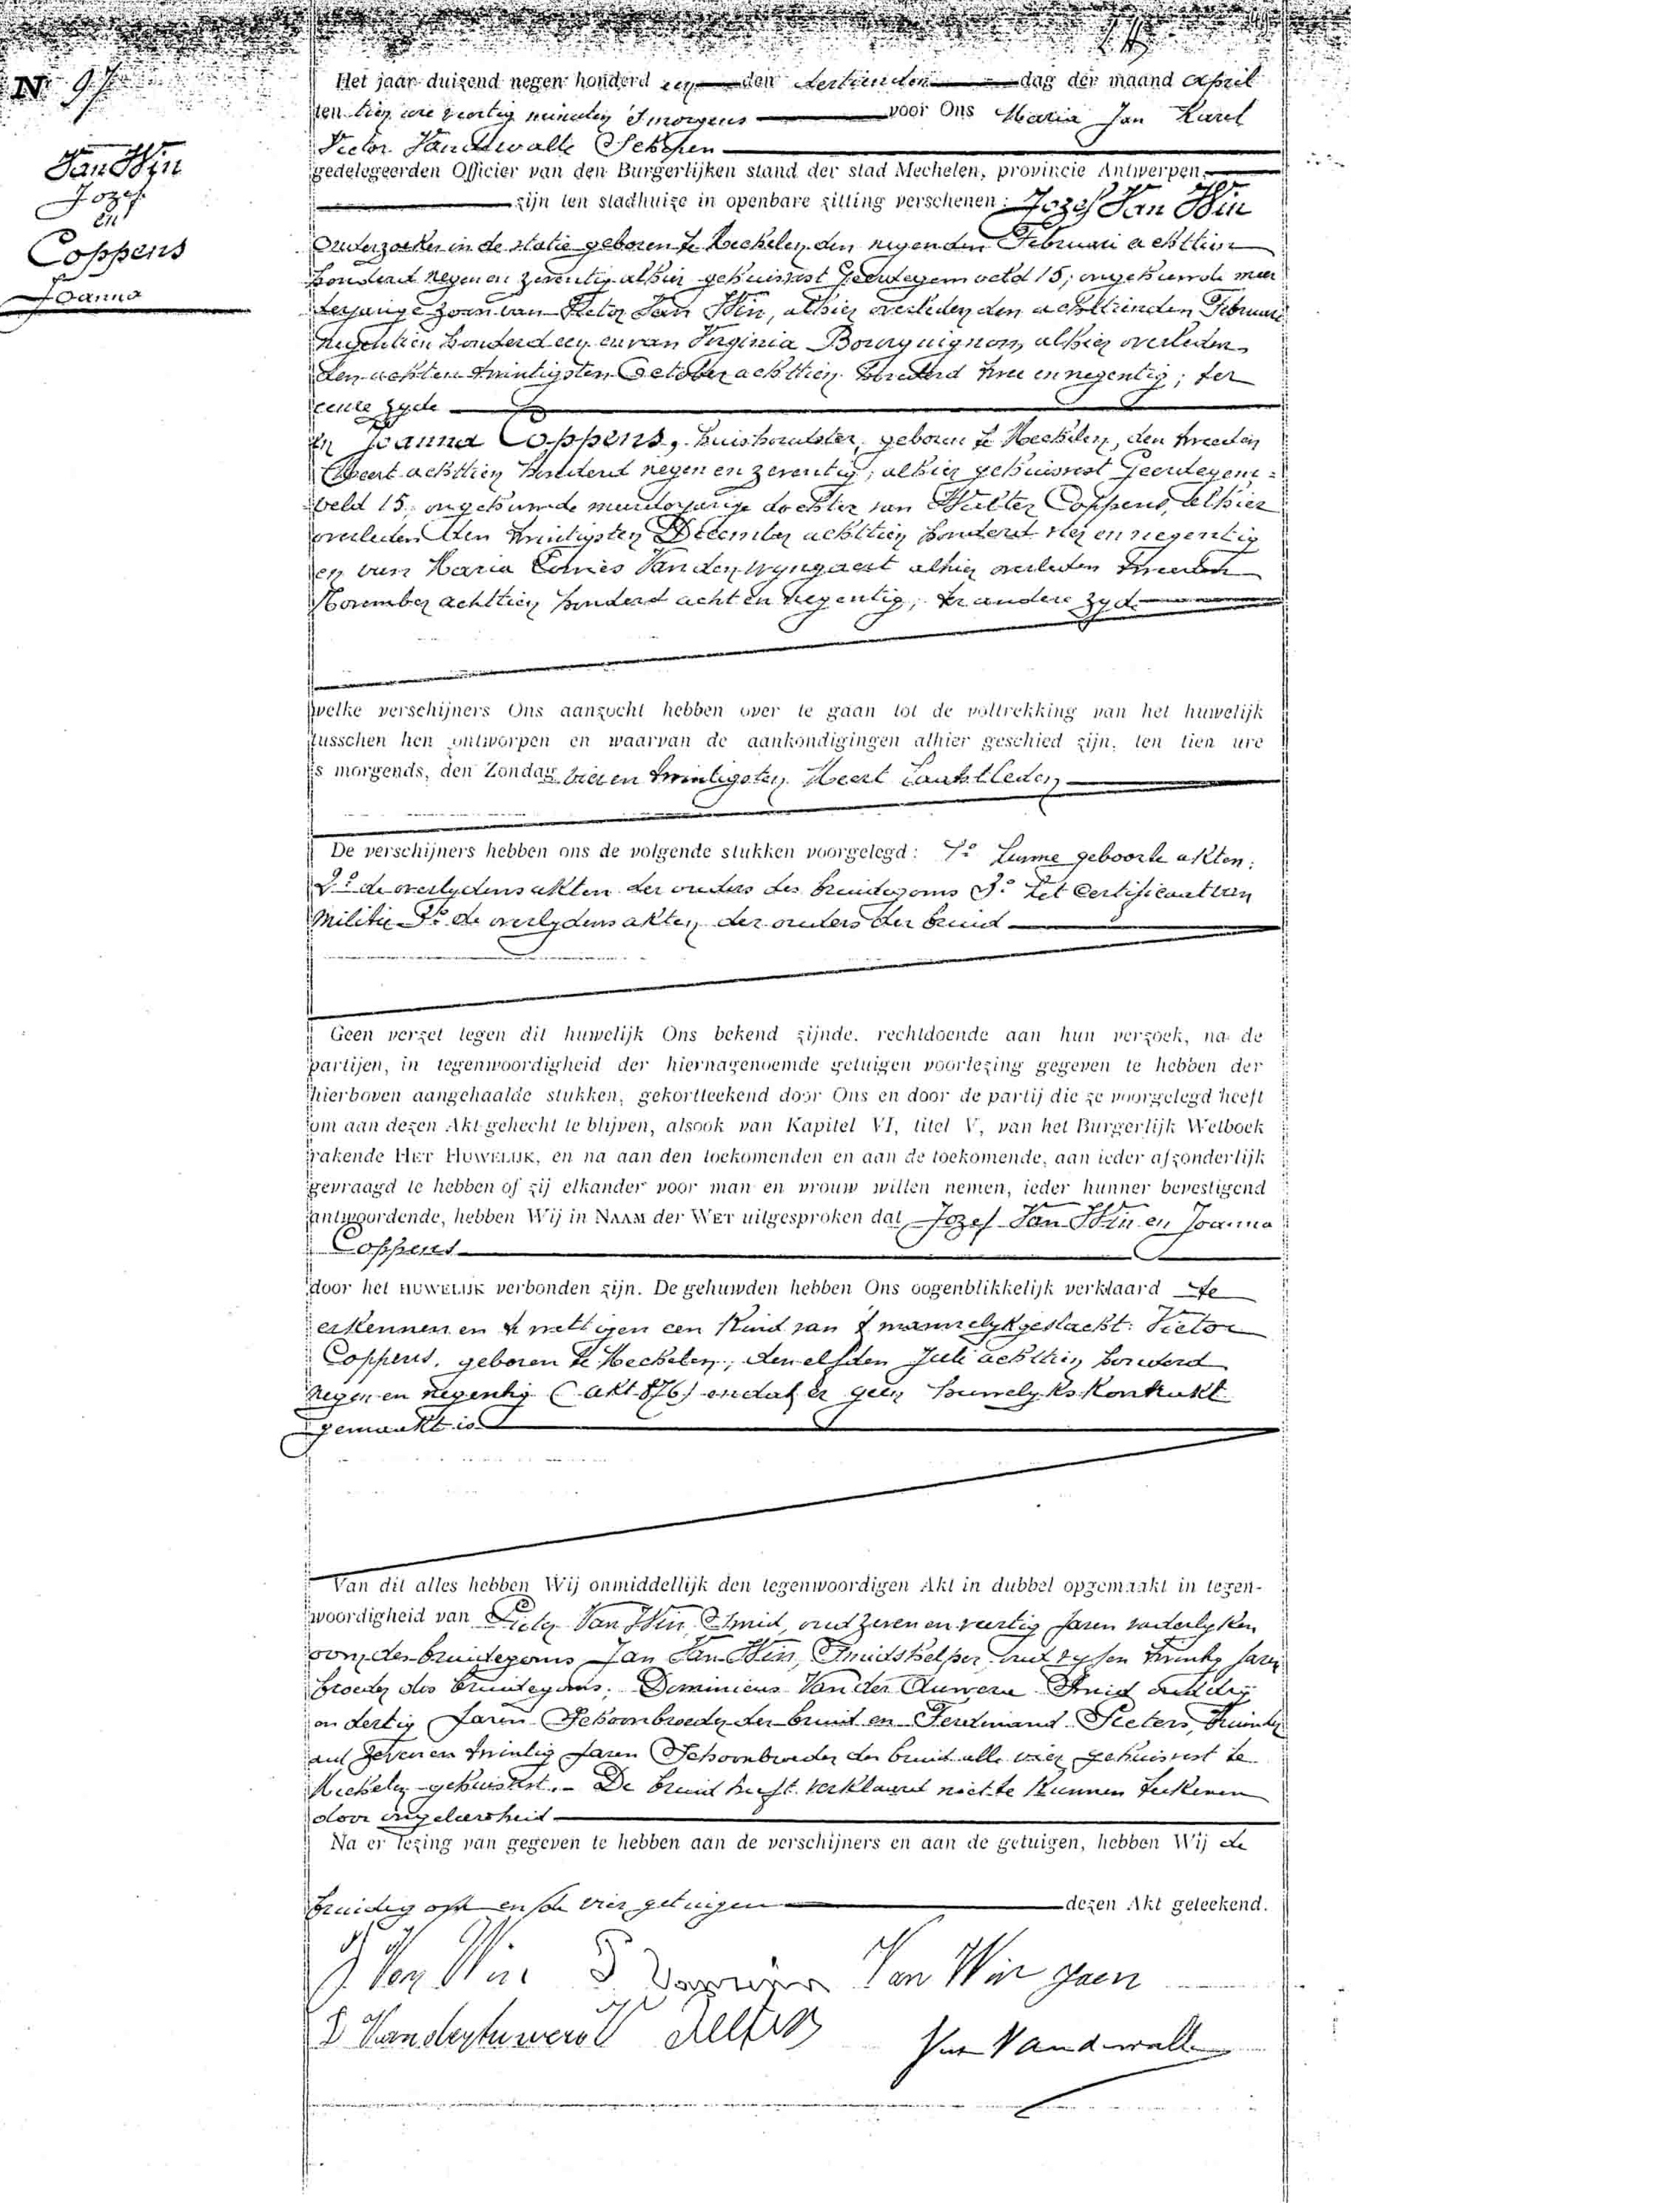 Nr 97
Van Win
Jozef
en
Coppens
Joanna
Het jaar duizend negen honderd een den dertienden dag der maand April
ten tien ure veertig minuten 's morgens voor Ons Maria Jan Karel
Victor Vandewalle Schepen
gedelegeerden Officier van den Burgerlijken stand der stad Mechelen, provincie Antwerpen,
zijn ten stadhuize in openbare zitting verschenen: Jozef Van Win
Onderzoeker in de statie geboren te Mechelen den negenden Februari achttien
honderd negen en zeventig alhier gehuisvest Geerdegem veld 15; ongehuwde meer
derjarige zoon van Pieter Van Win, alhier overleden den achttienden Februari
negentien honderd een en van Virginia Bourguignon, alhier overleden
den achten twintigsten October achttien honderd twee en negentig; ter
eenre zyde
en Joanna Coppens, huishoudster, geboren te Mechelen, den tweeden
Meert achttien honderd negen en zeventig; alhier gehuisvest Geerdegem=
veld 15, ongehuwde meerderjarige dochter van Wouter Coppens, alhier
overleden den twintigsten December achttien honderd vier en negentig
en van Maria Vanden Wyngaert alhier overleden tweeden
November achttien honderd acht en negentig; ter andere zyde
welke verschijners Ons aanzocht hebben over te gaan tot de voltrekking van het huwelijk
tusschen hen ontworpen en waarvan de aankondigingen alhier geschied zijn, ten tien ure
's morgends, den Zondag vier en twintigsten Meert laatstleden
De verschijners hebben ons de volgende stukken voorgelegd: 1° hunne geboorte akten;
2° de overlydens akten der ouders des bruidegoms 3° het certificaat van
militie 3° de overlydens akten der ouders der bruid
Geen verzet tegen dit huwelijk Ons bekend zijnde, rechtdoende aan hun verzoek, na de
partijen, in tegenwoordigheid der hiernagenoemde getuigen voorlezing gegeven te hebben der
hierboven aangehaalde stukken, gekortteekend door Ons en door de partij die ze voorgelegd heeft
om aan dezen Akt gehecht te blijven, alsook van Kapitel VI, titel V, van het Burgerlijk Wetboek
rakende HET HUWELIJK, en na aan den toekomenden en aan de toekomende, aan ieder afzonderlijk
gevraagd te hebben of zij elkander voor man en vrouw willen nemen, ieder hunner bevestigend
antwoordende, hebben Wij in NAAM der WET uitgesproken dat Jozef Van Win en Joanna
Coppens
door het HUWELIJK verbonden zijn. De gehuwden hebben Ons oogenblikkelijk verklaard te
erkennen en te wettigen een kind van 't mannelyk geslacht: Victor
Coppens, geboren te Mechelen, den elfden Juli achttien honderd
negen en negentig (akt 876) en dat er geen huwelyks kontrakt
gemaakt is
Van dit alles hebben Wij onmiddellijk den tegenwoordigen Akt in dubbel opgemaakt in tegen-
woordigheid van Pieter Van Win, Smid, oud zeven en veertig jaren vaderlyken
oom des bruidegoms Jan Van Win, Smidshelper, oud vyf en twintig jaren
broeder des bruidegoms; Dominicus Van der Auwera Smid oud drij
en dertig jaren Schoonbroeder der bruid en Ferdinand Peeters,
oud zeven en twintig jaren Schoonbroeder der bruid alle vier gehuisvest te
Mechelen gehuisvest. - De bruid heeft verklaard niet te kunnen teekenen
door ongeleerdheid
Na er lezing van gegeven te hebben aan de verschijners en aan de getuigen, hebben Wij de
bruidegom en de vier getuigen dezen Akt geteekend.
J Van Win P Vanwinn Van Win Jaen
D Vanderauwera
Vandewalle